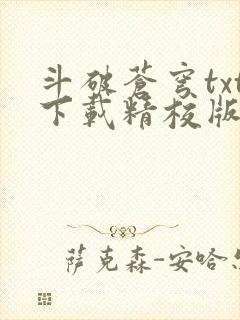 斗破蒼穹txt
下載精校版
萨克森-安哈